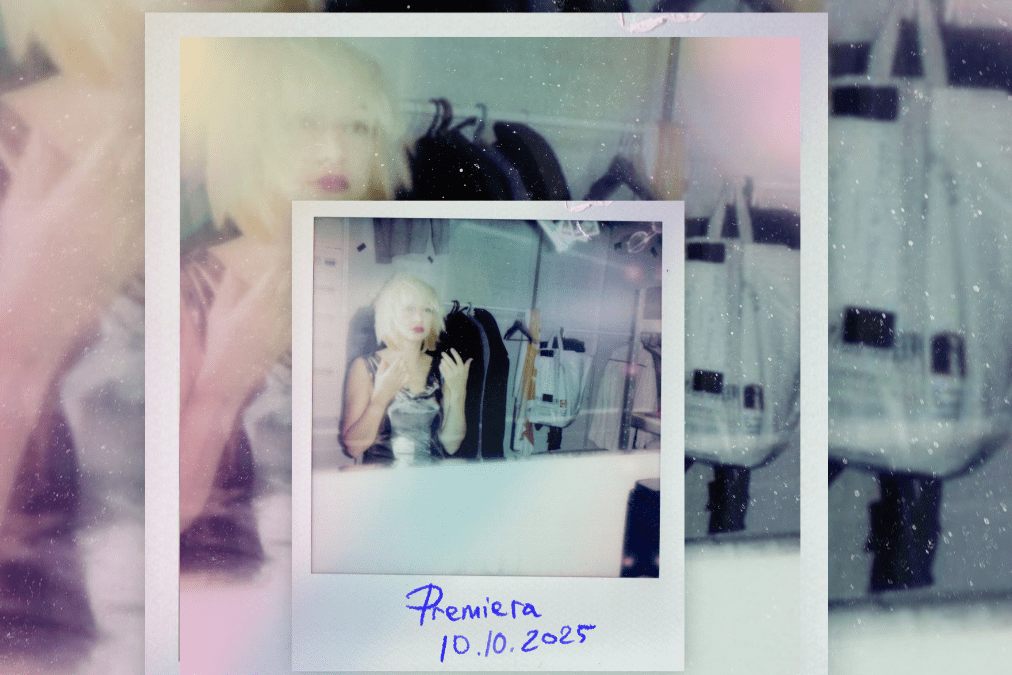 Premiera
10.10.2025